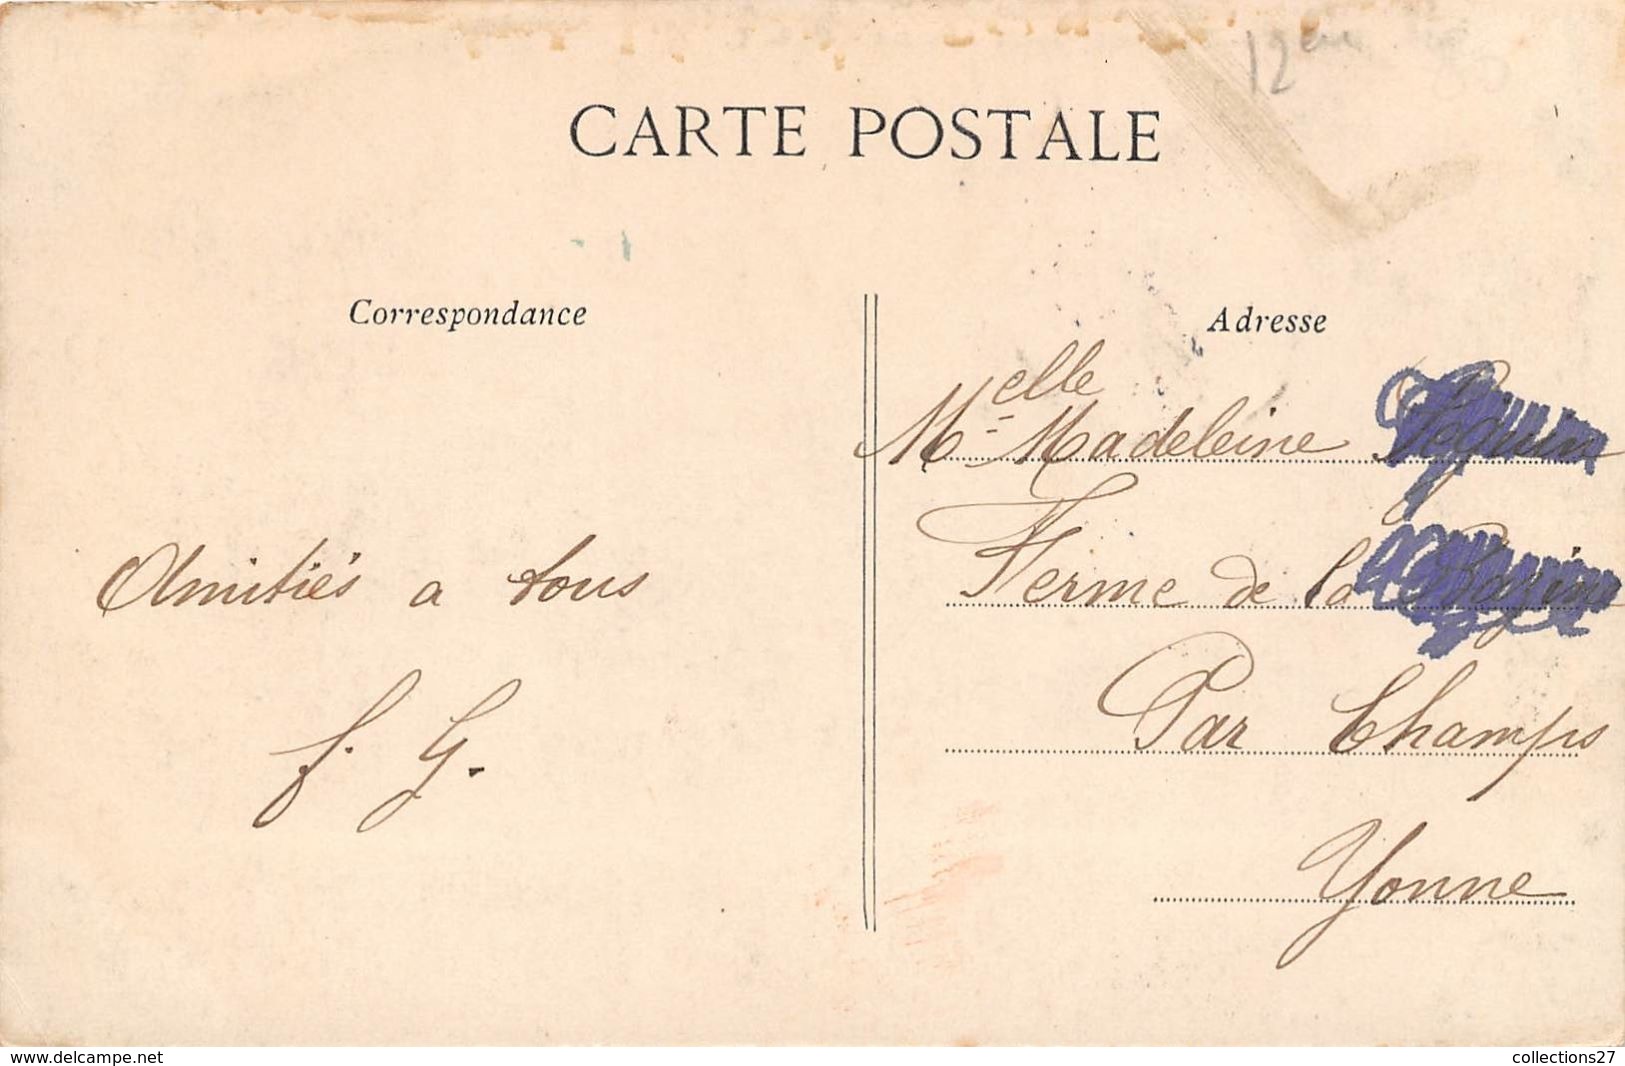 12em
CARTE POSTALE
Correspondance
Amitiés a tous
f. G.
Adresse
Melle Madeleine
Ferme de la
Par Champs
Yonne
www.delcampe.net
collections27